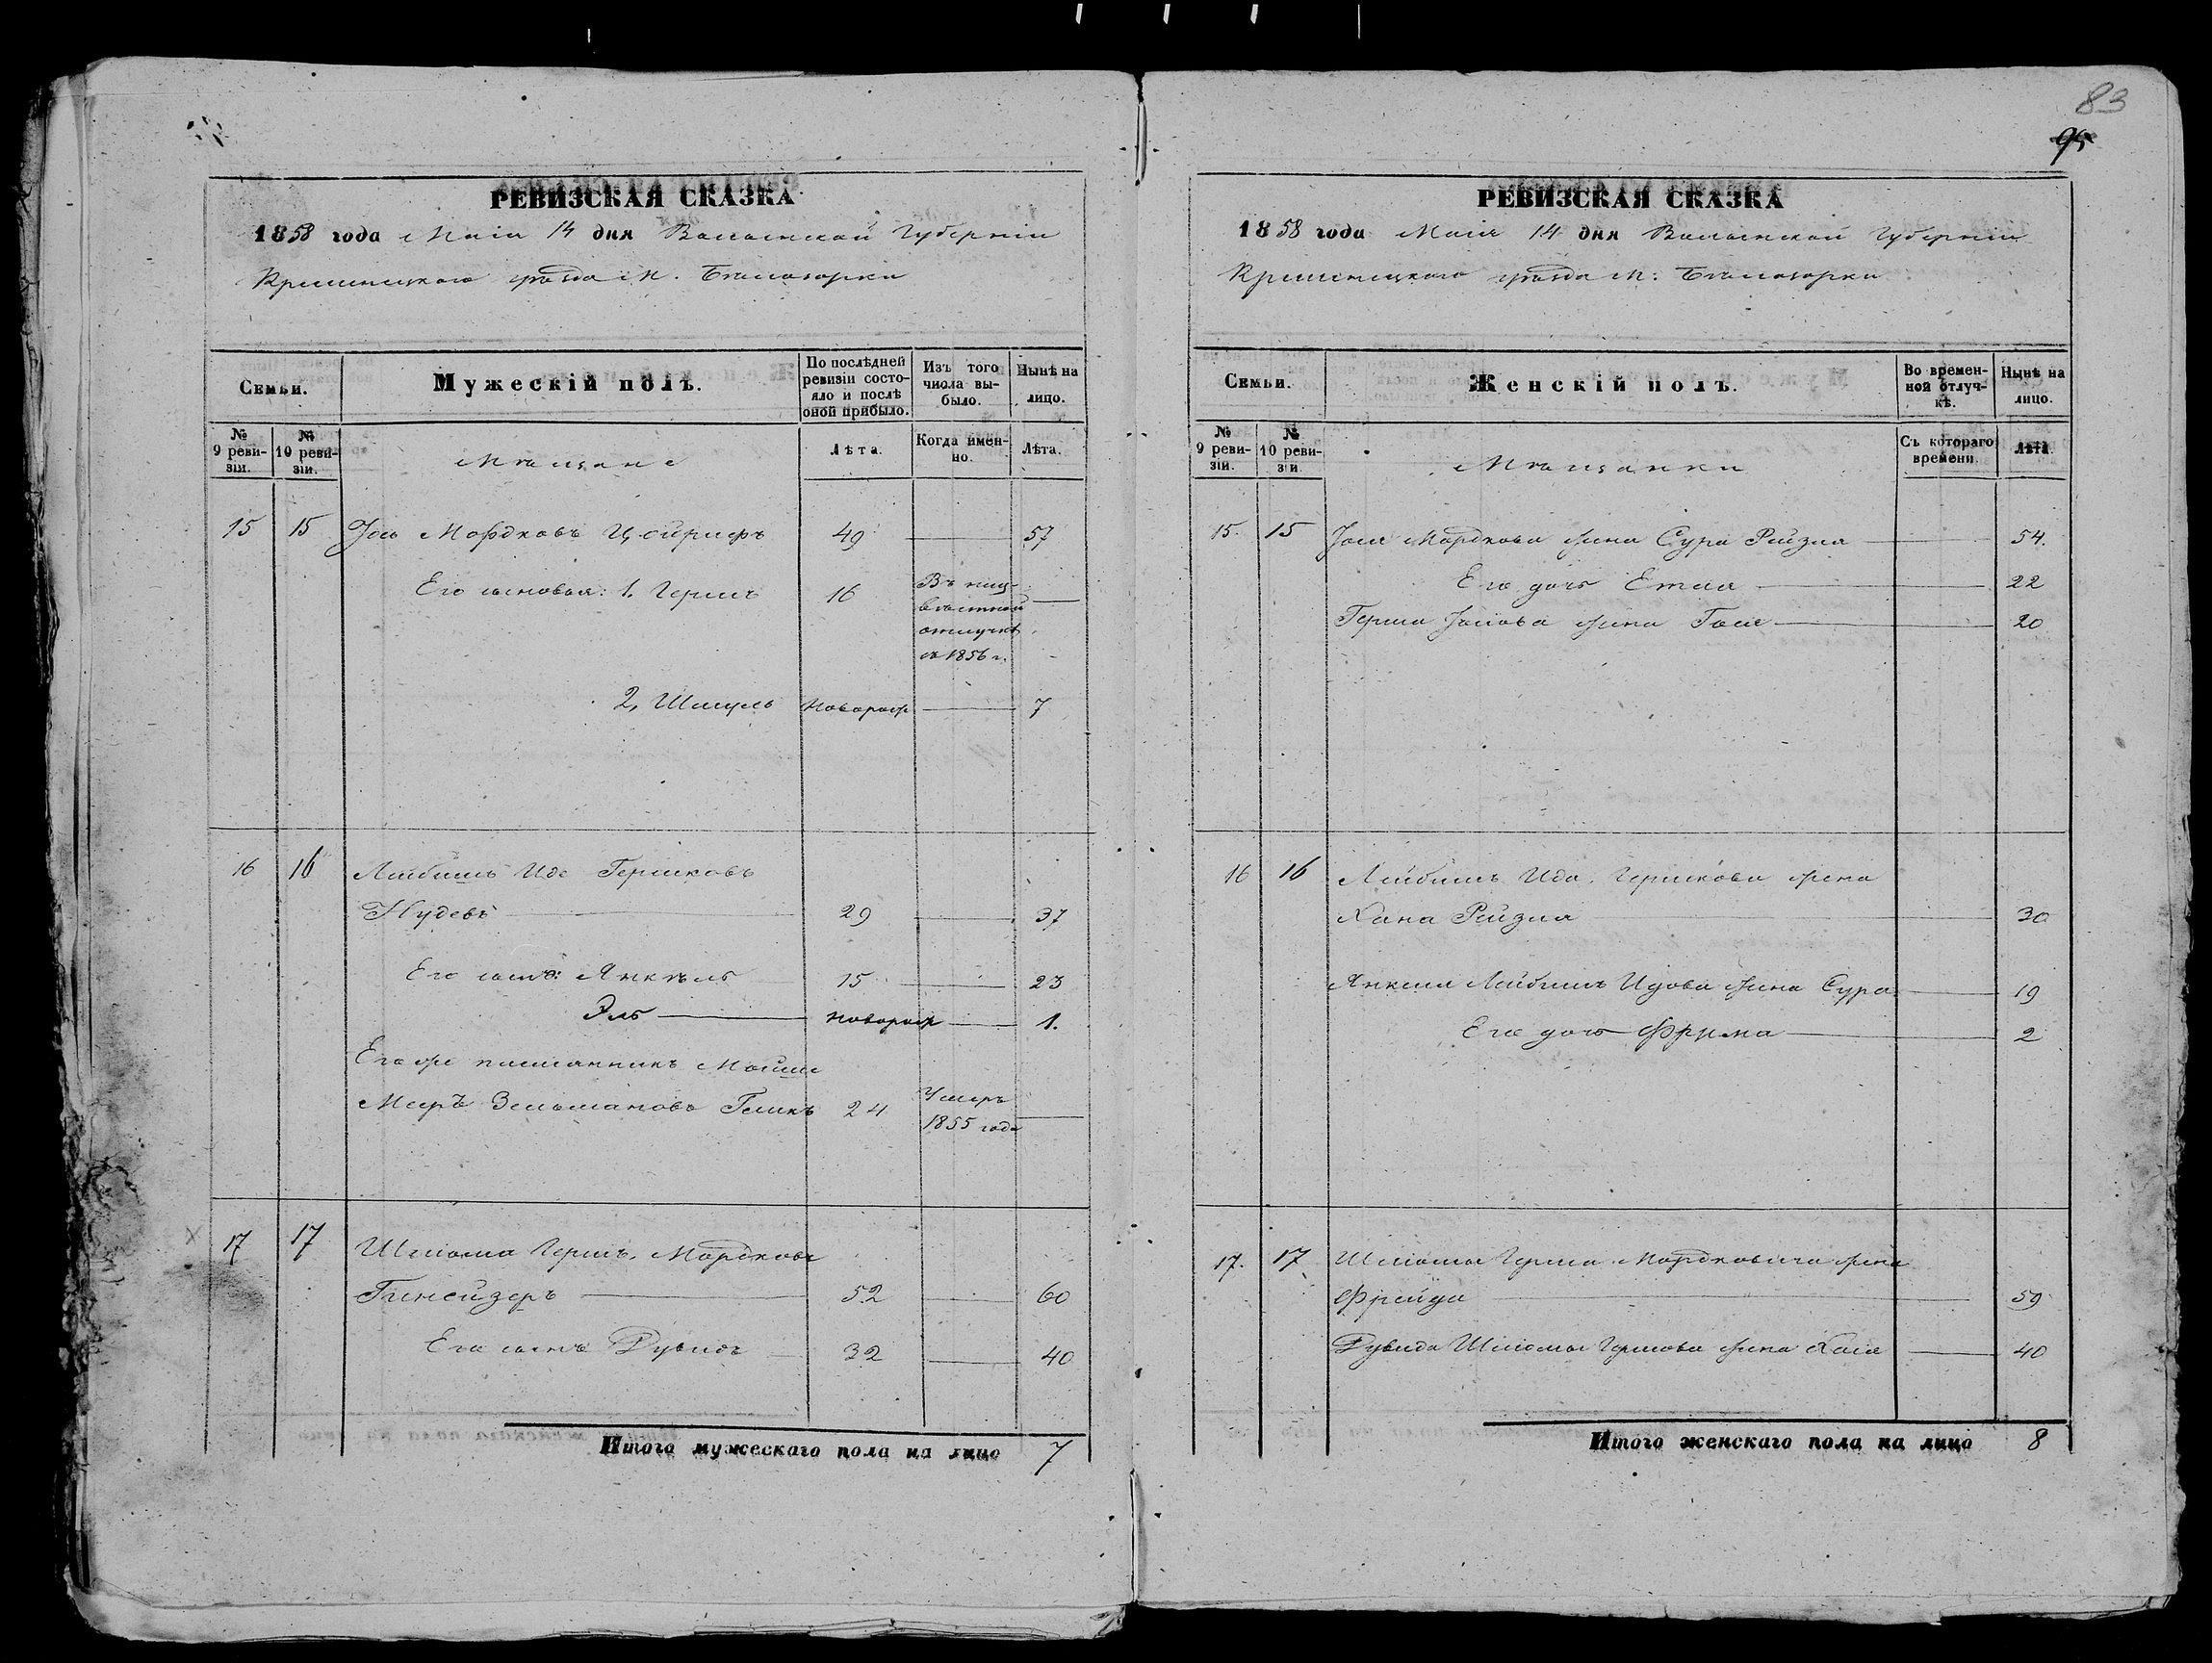 83
95
РЕВИЗСКАЯ СКАЗКА
1858 года Маія 14 дня Волынской Губерніи
Кременецкого уѣзда м. Бѣлозорки
Семьи.
Мужескій полъ.
По послѣдней ревизіи состояло и послѣ оной прибыло.
Изъ того числа выбыло.
Нынѣ на лицо.
№ 9 ревизіи.
№ 10 ревизіи.
Мѣщане
Лѣта.
Когда именно.
Лѣта.
15 15 Іось Мордковъ 49 57
Его сыновья: 1. Гершъ 16 Въ
отлучкѣ
съ 1856 г.
2, Шмуль новорож 7
16 16 Лейбишъ Иде Гершковъ
Нудевъ 29 37
Его сынъ: Янкель 15 23
Эль новорож 1.
Его же племянникъ Мойше
Меръ Зельмановъ 24 Умеръ
1855 года
17 17 Шліома Гершъ Мордковъ
52 60
Его сынъ Дувидъ 32 40
Итого мужескаго пола на лицо 7
РЕВИЗСКАЯ СКАЗКА
1858 года Маія 14 дня Волынской Губерніи
Кременецкого уѣзда м: Бѣлозорки
Семьи.
Женскій полъ.
Во временной отлучкѣ.
Нынѣ на лицо.
№ 9 ревизіи.
№ 10 ревизіи.
Мѣщанки
Съ котораго времени.
Лѣта.
15. 15 Іося Мордкова жена Сура Рейзля 54.
Его дочь Етля 22
Герша Іосіова жена 20
16 16 Лейбишъ Ида Гершкова жена
Хана Рейзля 30
Янкеля Лейбишъ Идова жена Сура 19
Его дочь Фрума 2
17. 17 Шліомы Герша Мордковича жена
Фрейда 59
Дувида Шліомы Гершова жена Хая 40
Итого женскаго пола на лицо 8